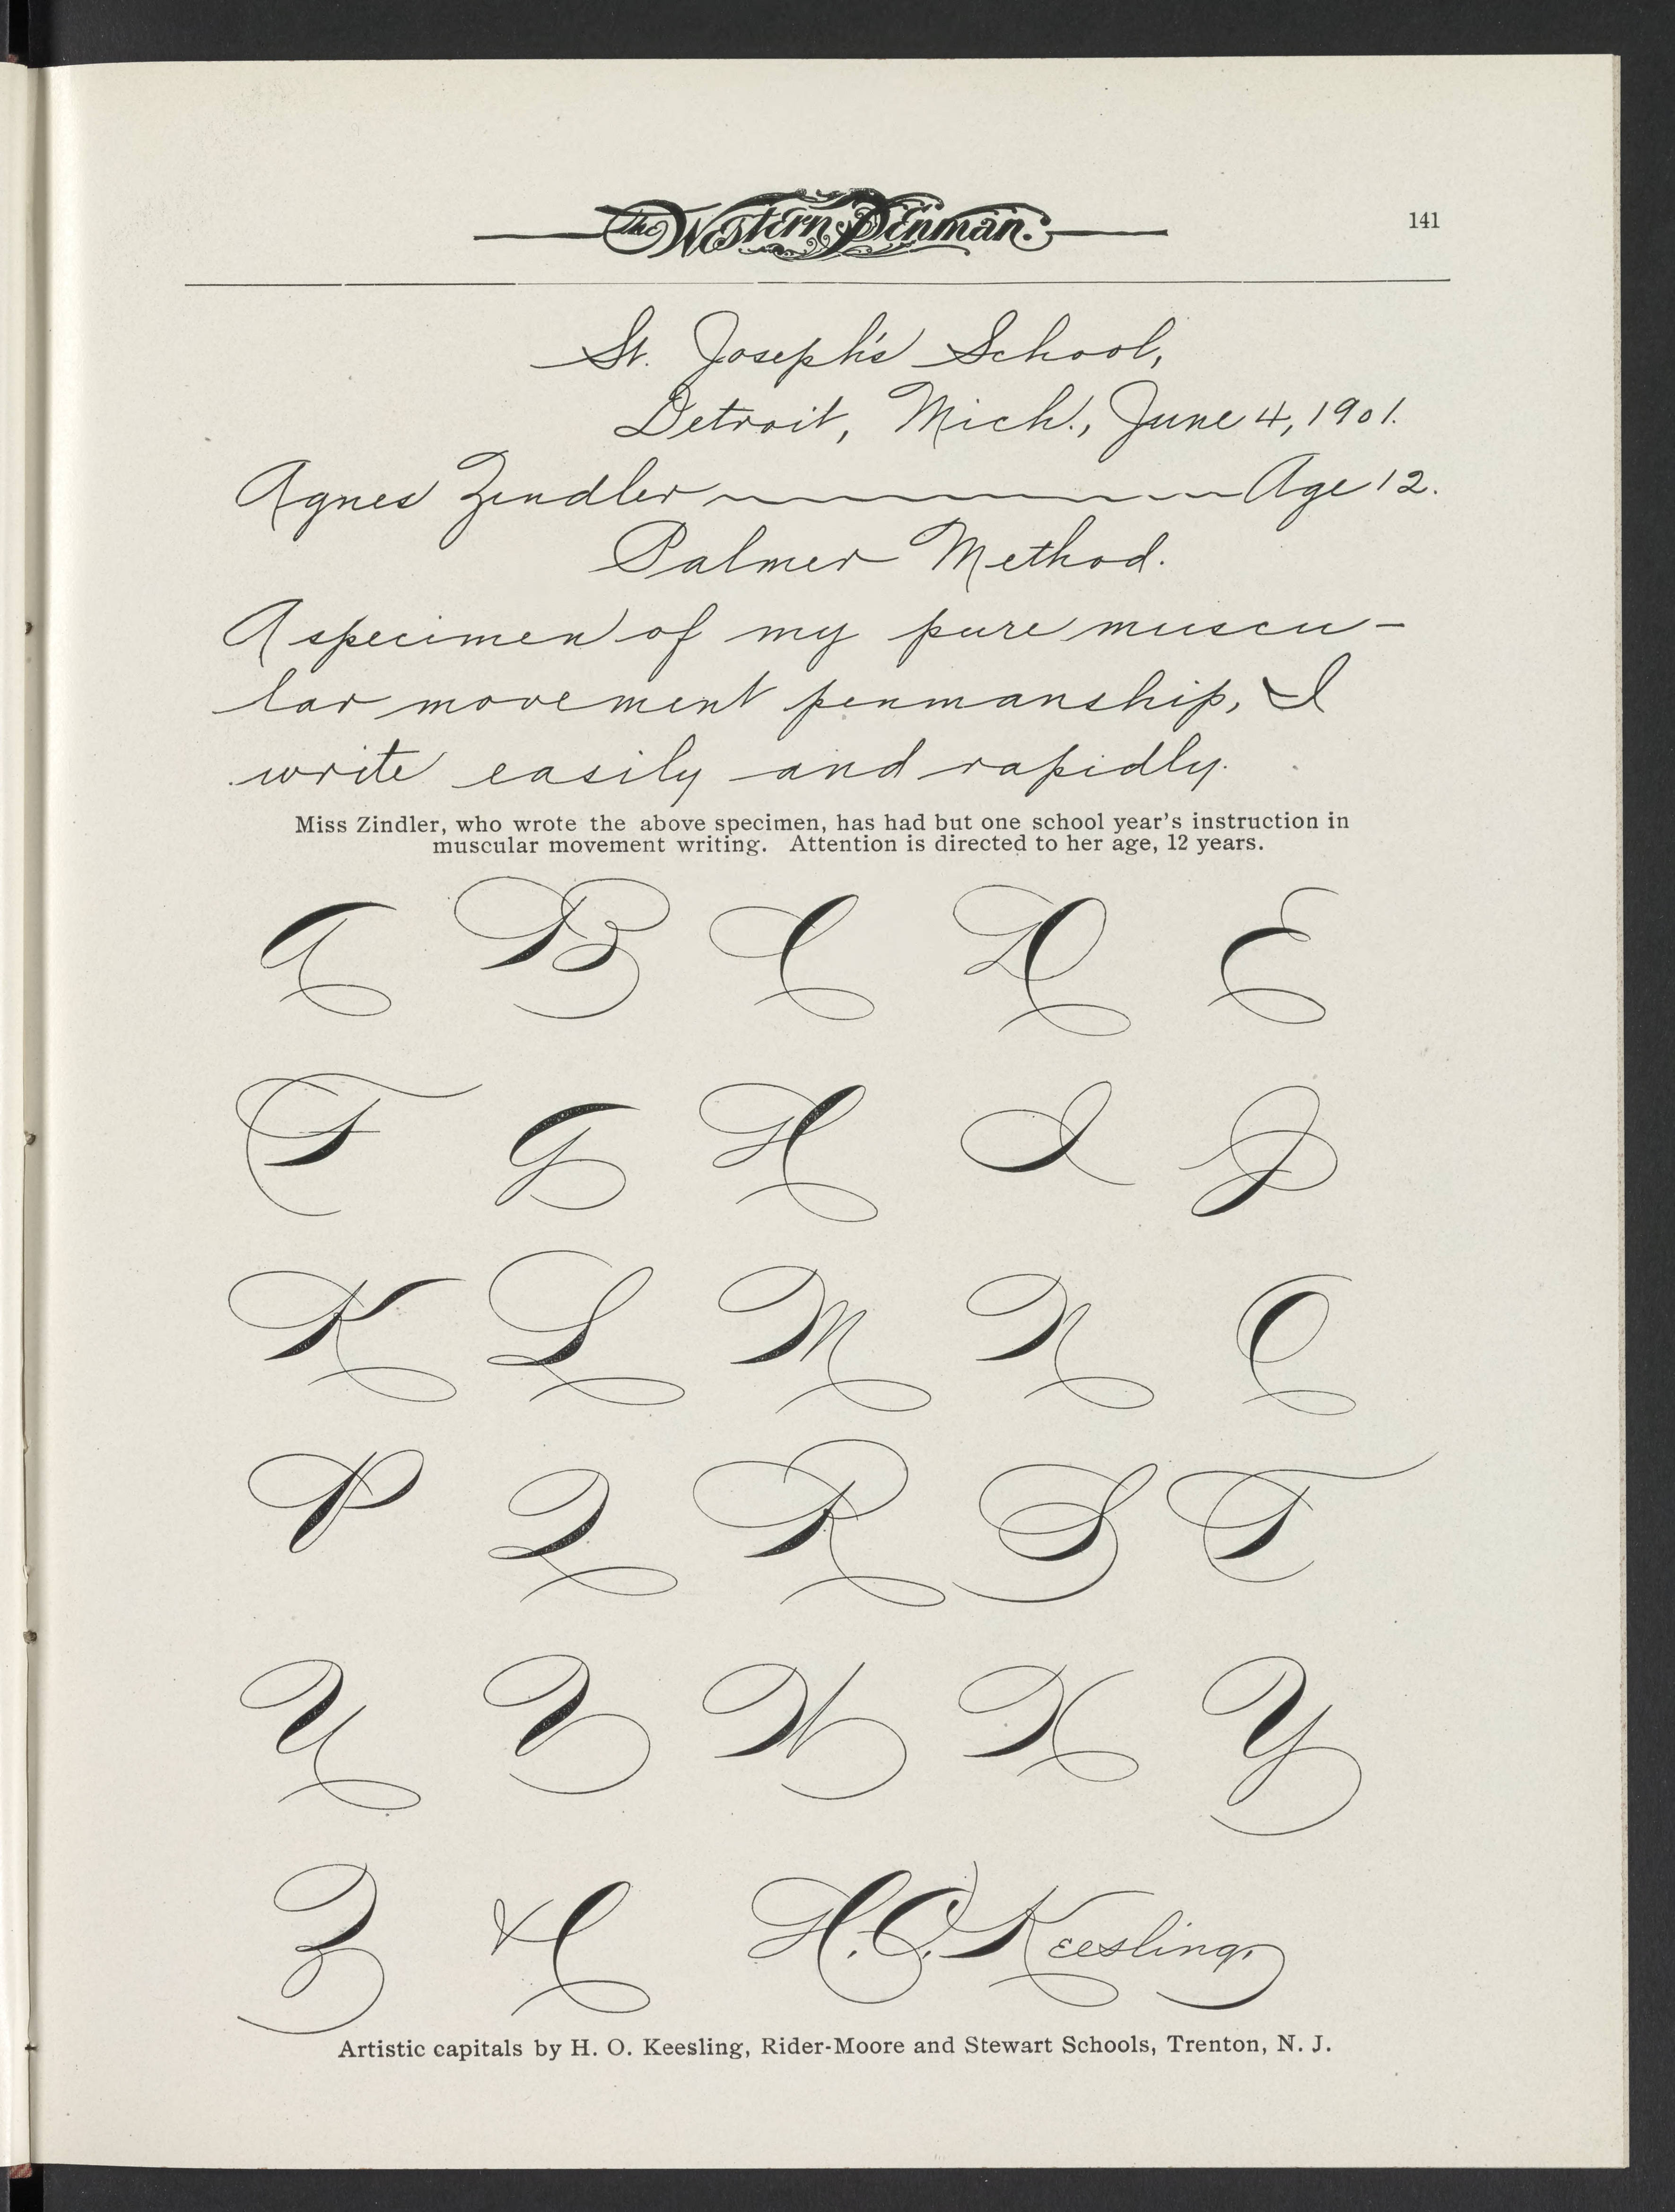 The Western Penman.
141
St. Joseph's School,
Detroit, Mich., June 4, 1901.
Agnes Zindler Age 12.
Palmer Method.
A specimen of my pure muscu-
lar movement penmanship, I
write easily and rapidly.
Miss Zindler, who wrote the above specimen, has had but one school year's instruction in
muscular movement writing. Attention is directed to her age, 12 years.
A B C D E
F G H I J
K L M N O
P Q R S T
U V W X Y
Z & C H. O. Keesling,
Artistic capitals by H. O. Keesling, Rider-Moore and Stewart Schools, Trenton, N. J.